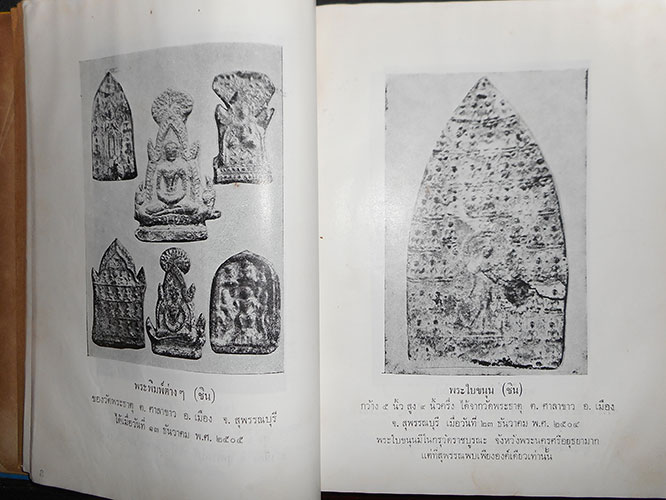 พระพิมพ์ต่างๆ (ชิน)
ของวัดพระธาตุ ต. ศาลาขาว อ. เมือง จ. สุพรรณบุรี
ได้เมื่อวันที่ ๑๓ ธันวาคม พ.ศ. ๒๕๐๕
พระใบขนุน (ชิน)
กว้าง ๕ นิ้ว สูง ๙ นิ้วครึ่ง ได้จากวัดพระธาตุ ต. ศาลาขาว อ. เมือง
จ. สุพรรณบุรี เมื่อวันที่ ๒๓ ธันวาคม พ.ศ. ๒๕๐๔
พระใบขนุนมีในกรุวัดราชบูรณะ จังหวัดพระนครศรีอยุธยามาก
แต่ที่สุพรรณพบเพียงองค์เดียวเท่านั้น